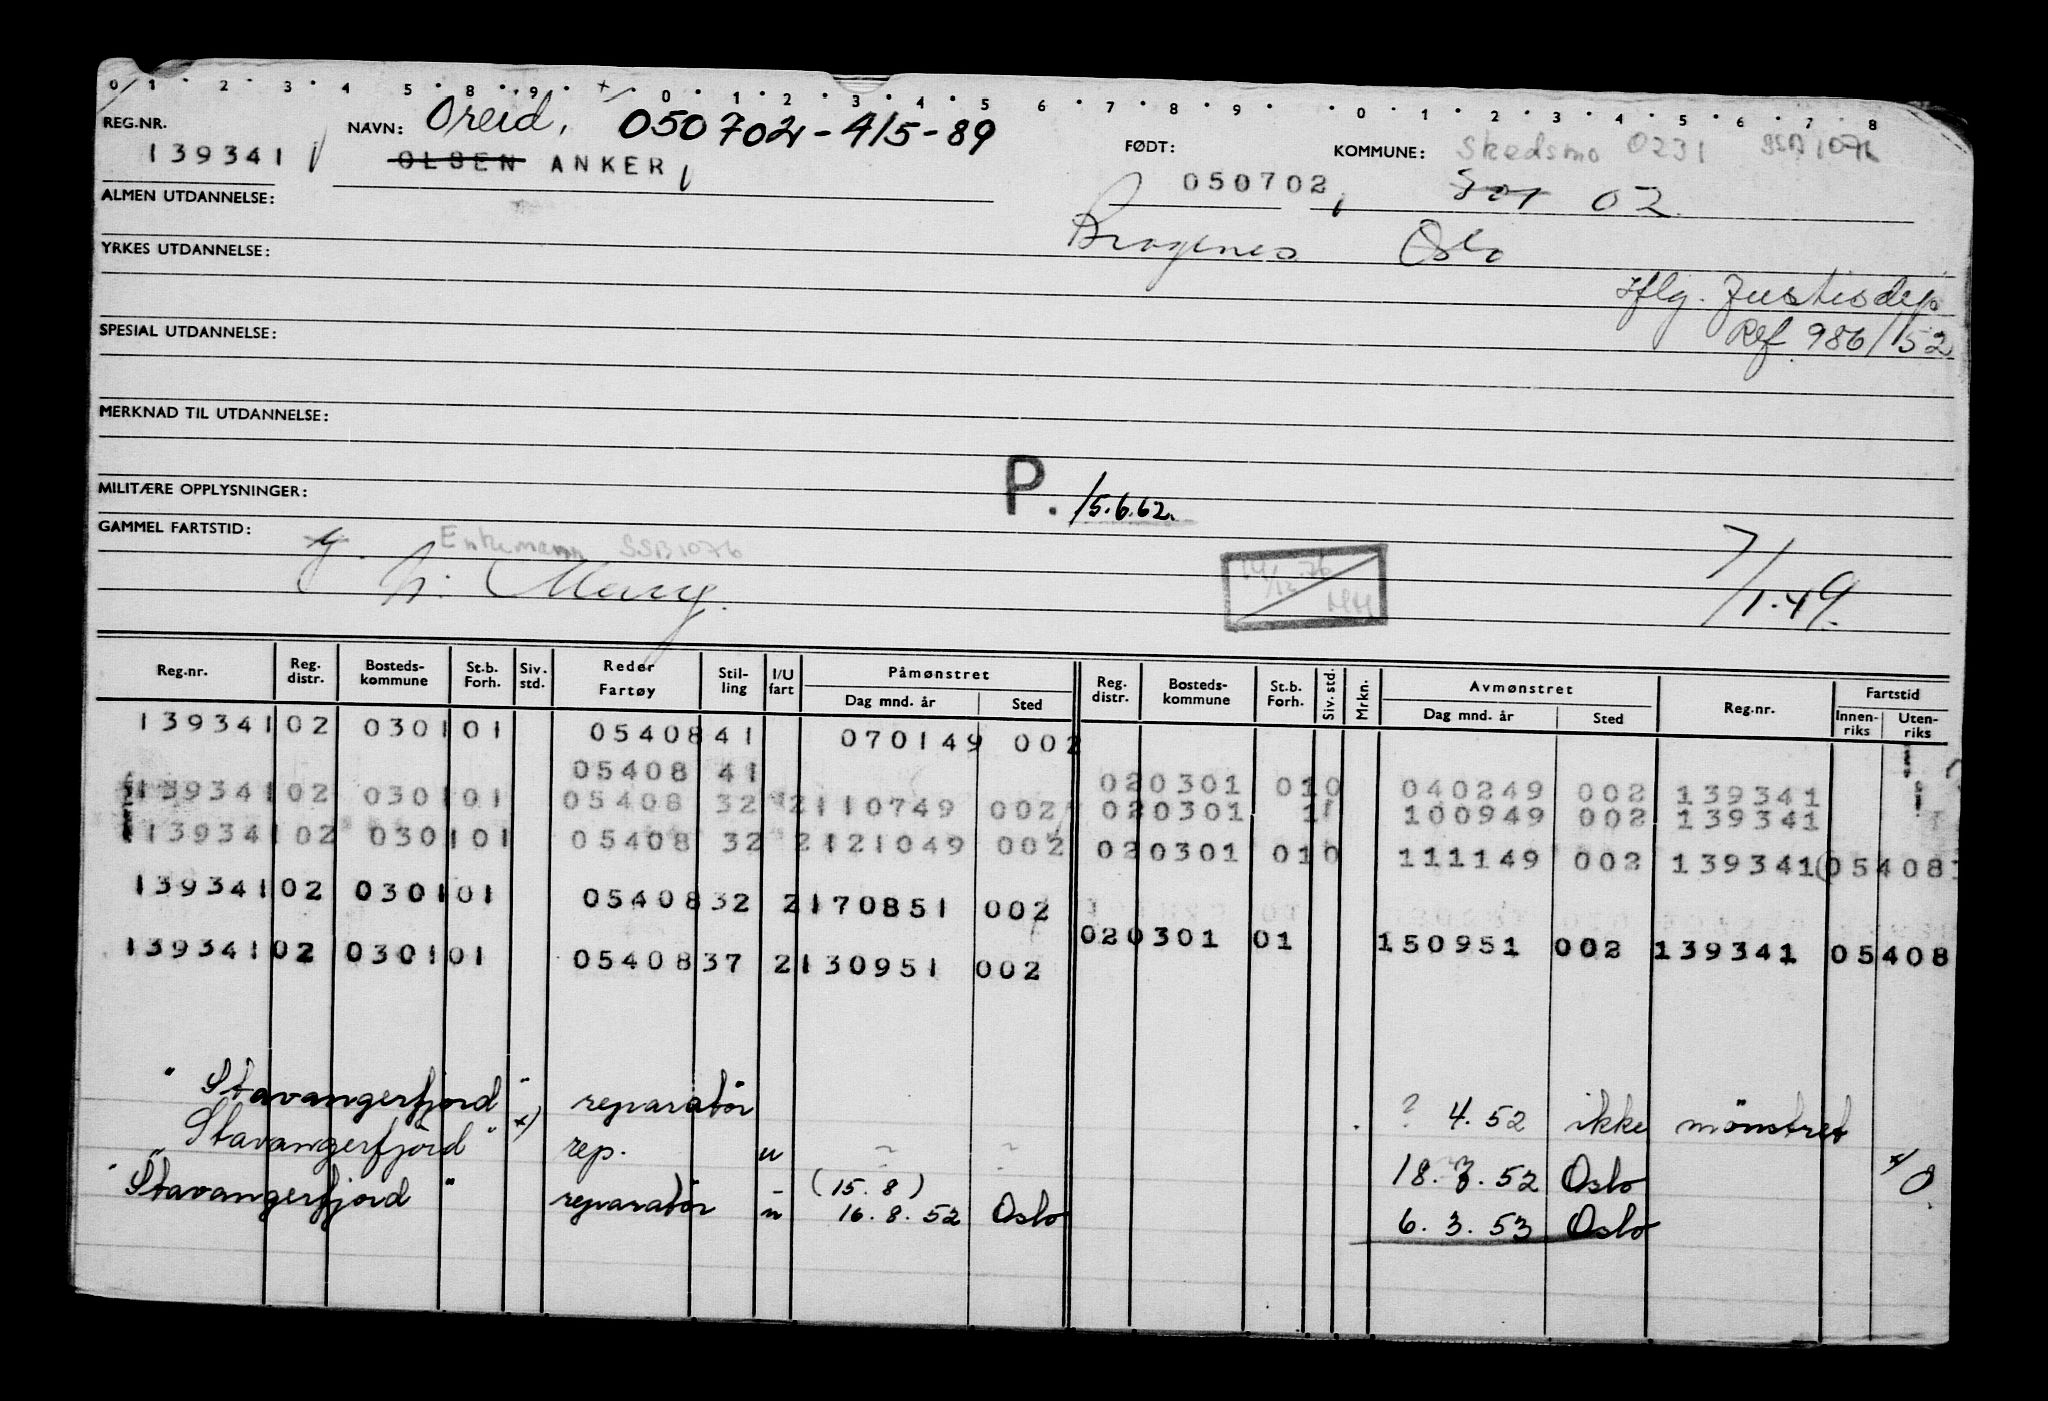 0 1 2 3 4 5 8 9 0 1 2 3 4 5 6 7 8 9 0 1 2 3 4 5 6 7 8
REG.NR. 139341
NAVN: Oreid, 050702 - 415-89
OLSEN ANKER
FØDT: 050702
KOMMUNE: Skedsmo 0231 SSB 1076
02
ALMEN UTDANNELSE:
Oslo
YRKES UTDANNELSE:
Iflg. Justisdep
Ref 986/52
SPESIAL UTDANNELSE:
MERKNAD TIL UTDANNELSE:
MILITÆRE OPPLYSNINGER:
P. 15.6.62.
GAMMEL FARTSTID:
g. Enkemann SSB 1076
h. Mary.
14/12 76
7/1.49.
Reg.nr. Reg. distr. Bosteds-kommune St.b. Forh. Siv. std. Reder Fartøy Stil-ling I/U fart Påmønstret Dag mnd. år Sted Reg. distr. Bosteds-kommune St.b. Forh. Siv. std. Mrkn. Avmønstret Dag mnd. år Sted Reg.nr. Fartstid Innen-riks Uten-riks
139341 02 0301 01 05408 41 070149 002
05408 41 02 0301 01 0 040249 002 139341
139341 02 0301 01 05408 32 2 110749 002 02 0301 11 100949 002 139341
139341 02 0301 01 05408 32 2 121049 002 02 0301 01 0 111149 002 139341 05408
139341 02 0301 01 05408 32 2 170851 002
02 0301 01 150951 002 139341 05408
139341 02 0301 01 05408 37 2 130951 002
"Stavangerfjord" reparatör ? 4.52 ikke mönstret
"Stavangerfjord" x) rep. u ~ ~ 18.3.52 Oslo
"Stavangerfjord" reparatör u (15.8) 16.8.52 Oslo 6.3.53 Oslo